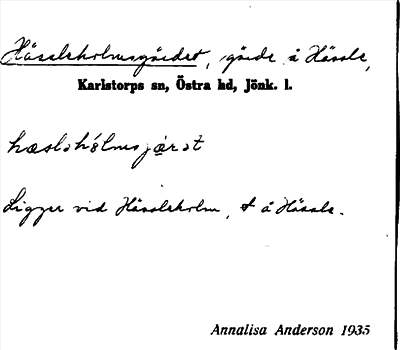 Hässleholmsgärdet, gärde å Hässle,
Karlstorps sn, Östra hd, Jönk. l.
hæsləhólmsjærət
Ligger vid Hässleholm, t å Hässle.
Annalisa Anderson 1935